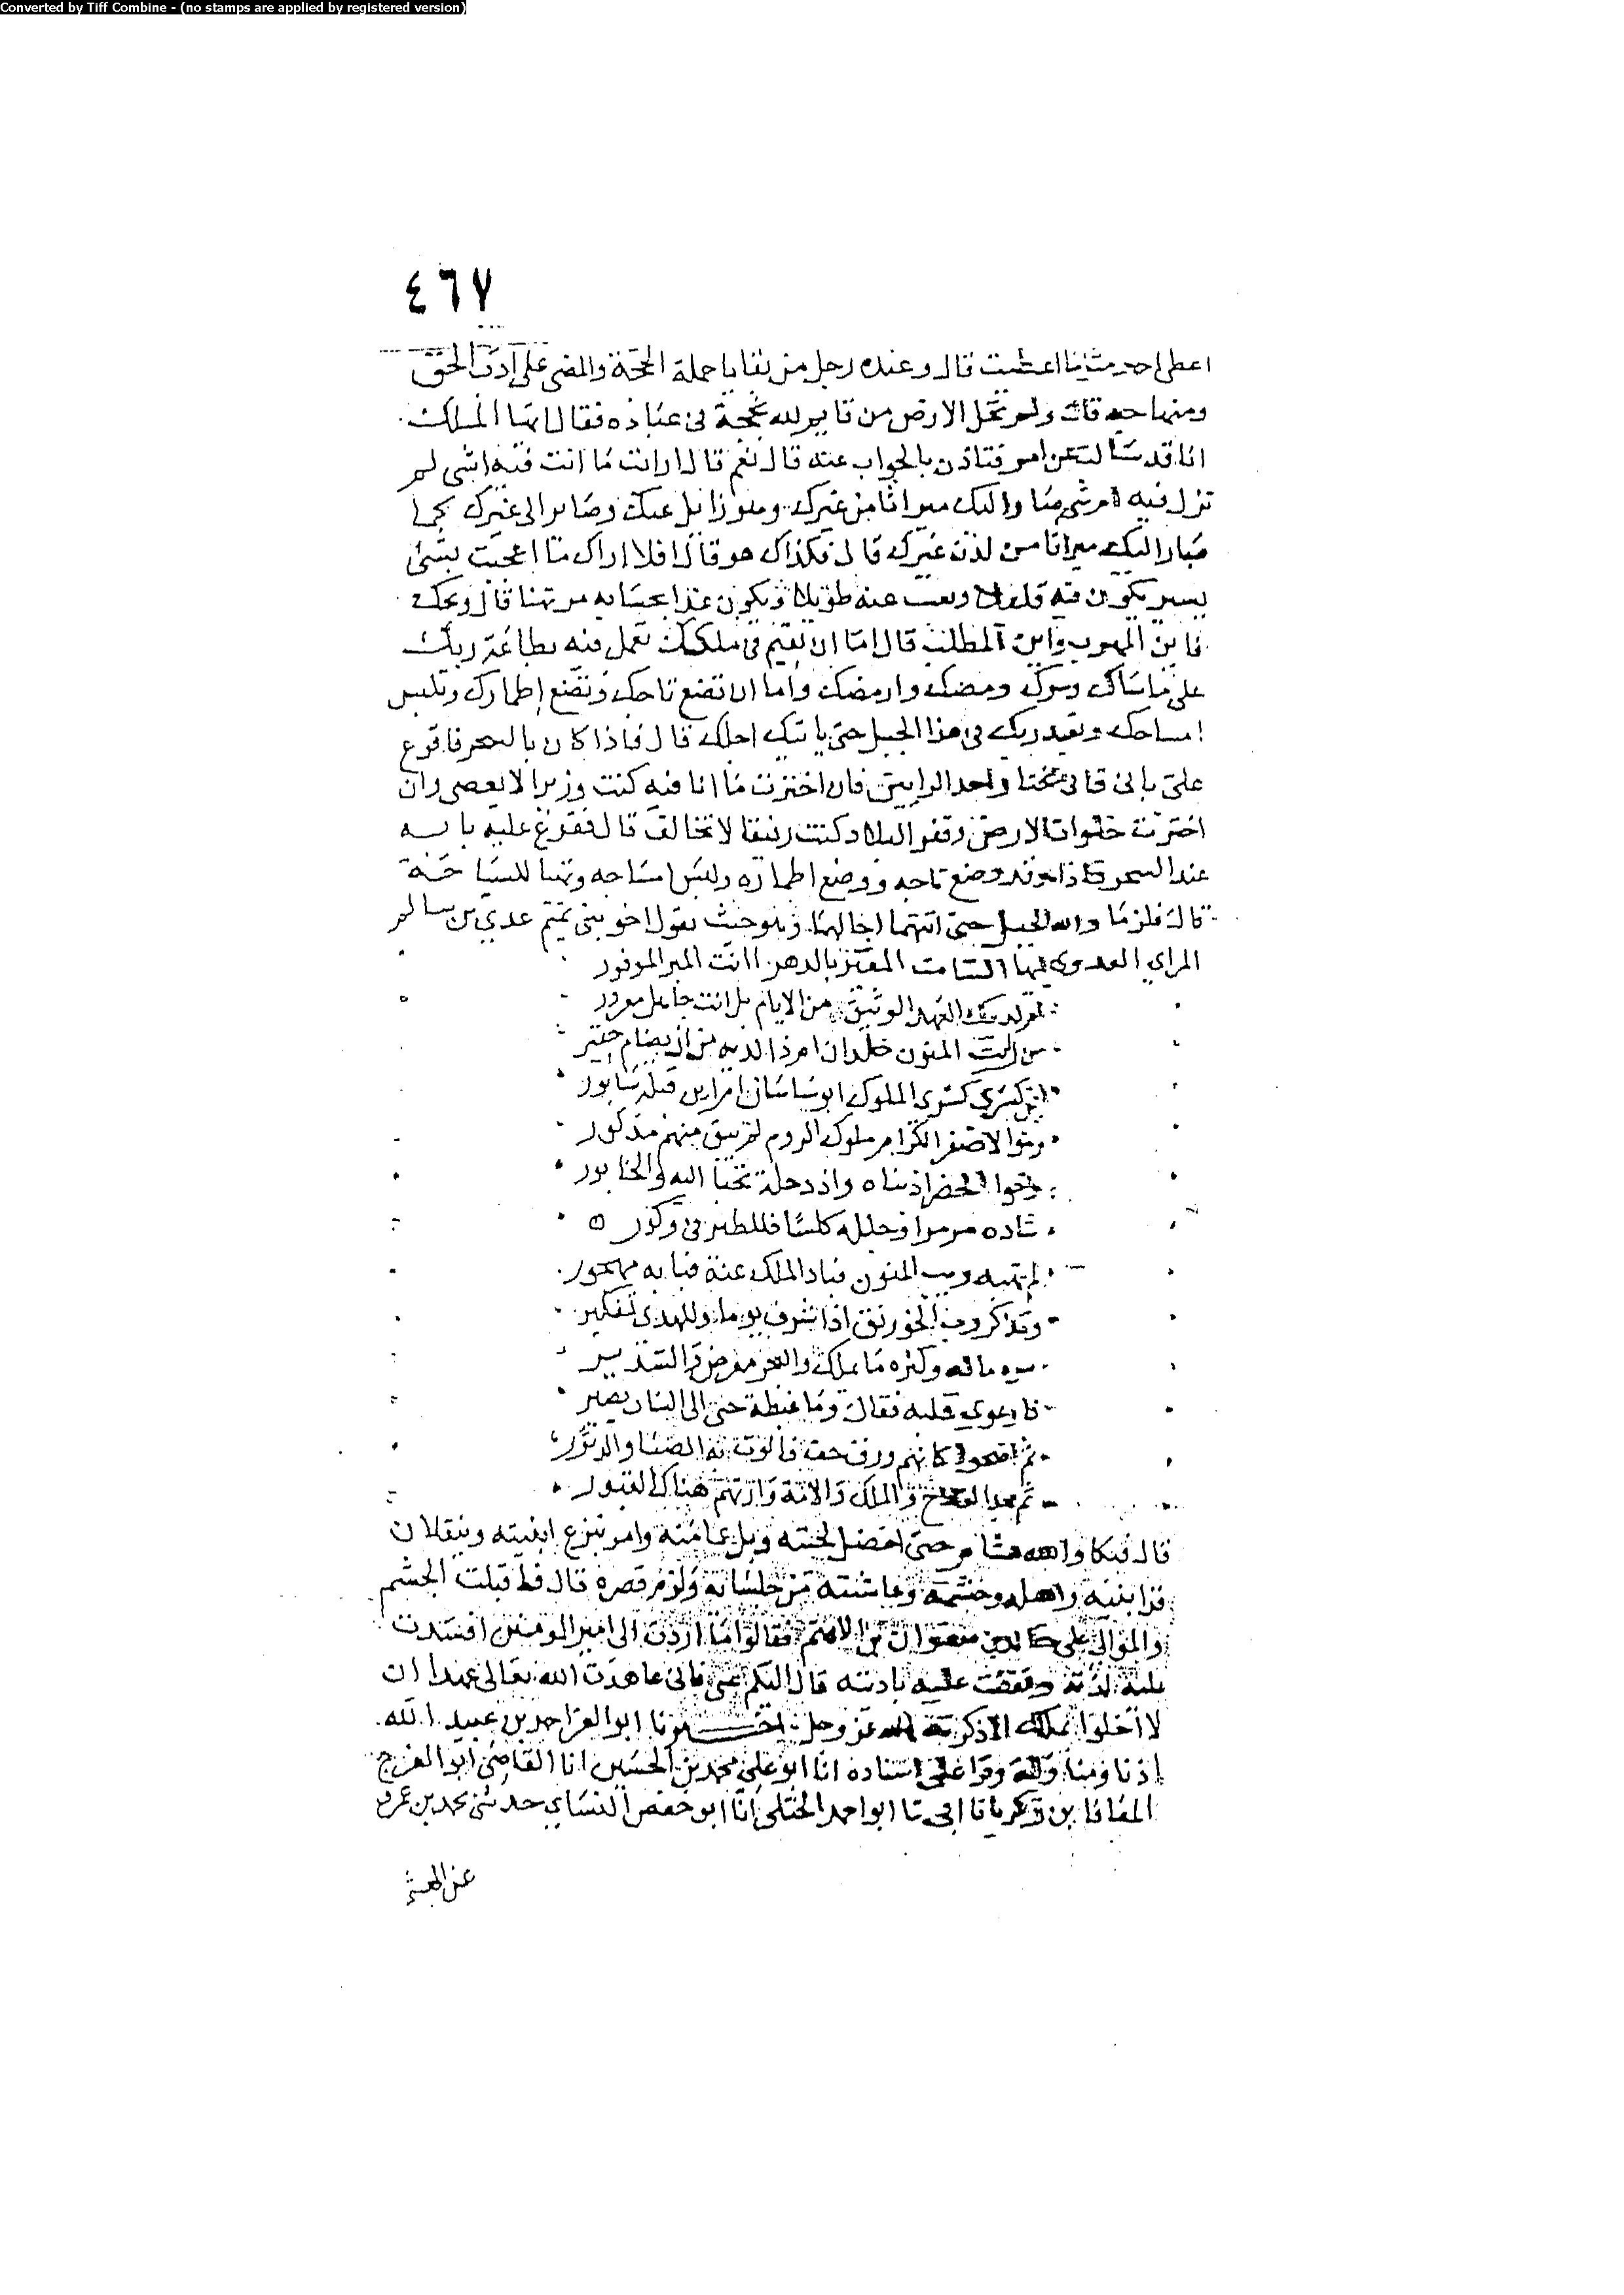 Converted by Tiff Combine - (no stamps are applied by registered version)
٤٦٧
اعطى احد مثل ما اعطيت قال وعنده رجل من بقايا حملة الحجة والمضى على ادب الحق
ومنهاجه قال ولم تخل الارض من قايم لله بحجة فى عباده فقال ايها الملك
انك قد سالت عن امر فتاذن بالجواب عنه قال نعم قال ارايت ما انت فيه اشى لم
تزل فيه ام شى صار اليك ميراثا من غيرك وهو زايل عنك وصاير الى غيرك كما
صار اليك ميراثا من لدن غيرك قال فكذاك هو قال افلا اراك انما اعجبت بشى
يسير تكون فيه قليلا وتغيب عنه طويلا وتكون غدا بحسابه مرتهنا قال ويحك
فاين المهرب واين المطلب قال اما ان تقيم فى ملكك تعمل فيه بطاعة ربك
على ما ساك وسرك ومضك وارمضك واما ان تضع تاجك وتضع اطمارك وتلبس
امساحك وتعبد ربك فى هذا الجبل حتى ياتيك اجلك قال فاذا كان بالسحر فاقرع
على بابى فانى مختار احد الرايين فان اخترت ما انا فيه كنت وزيرا لا يعصى وان
اخترت خلوات الارض وقفر البلاد كنت رفيقا لا تخالف قال فقرع عليه بابه
عند السحر فاذا هو قد وضع تاجه ووضع اطماره ولبس امساحه وتهيا للسياحة
قال فلزما والله الجبل حتى اتتهما اجالهما وهو حيث يقول اخو بنى تميم عدي بن سالم
المراي العدوي ايها الشامت المعير بالدهر اانت المبرا الموفور
ام لديك العهد الوثيق من الايام بل انت جاهل مغرور
من رايت المنون خلدن ام من ذا لديه من ان يضام خفير
اين كسرى كسرى الملوك ابو ساسان ام اين قبله سابور
وبنوا الاصفر الكرام ملوك الروم لم يبق منهم مذكور
واخوا الحضر اذ بناه واذ دجلة تجبا اليه والخابور
شاده مرمرا وجلله كلسا فللطير فى ذراه وكور
لم تهبه ريب المنون فباد الملك عنه فبابه مهجور
وتذكر رب الخورنق اذ اشرف يوما وللهدى تفكير
سره ماله وكثرة ما يملك والبحر معرض والسدير
فارعوى قلبه فقال وما غبطة حى الى الممات يصير
ثم اضحوا كانهم ورق جف فالوت به الصبا والدبور
ثم بعد الفلاح والملك والامة وارتهم هناك القبور
قال فبكا والله هشام حتى اخضل لحيته وبل عمامته وامر بنزع ابنيته وبنقلان
قرابنيه واهله وحشمه وغاشيته من جلسائه ولزم قصره قال فاقبلت الحشم
والموالى على خالد بن صفوان بن الاهتم فقالوا ما اردت الى امير المومنين افسدت
عليه لذته ونغصت عليه باديته قال اليكم عنى فانى عاهدت الله تعالى عهدا ان
لا اخلوا بملك الا ذكرته الله عز وجل اخبرنا ابو العز احمد بن عبيد الله
اذنا ومناولة وقرا على اسناده انا ابو على محمد بن الحسين انا القاضى ابو الفرج
المعافا بن زكريا نا ابى نا ابو احمد الختلى انا ابو حفص النسائي حدثنى محمد بن عمرو
عن الهيثم